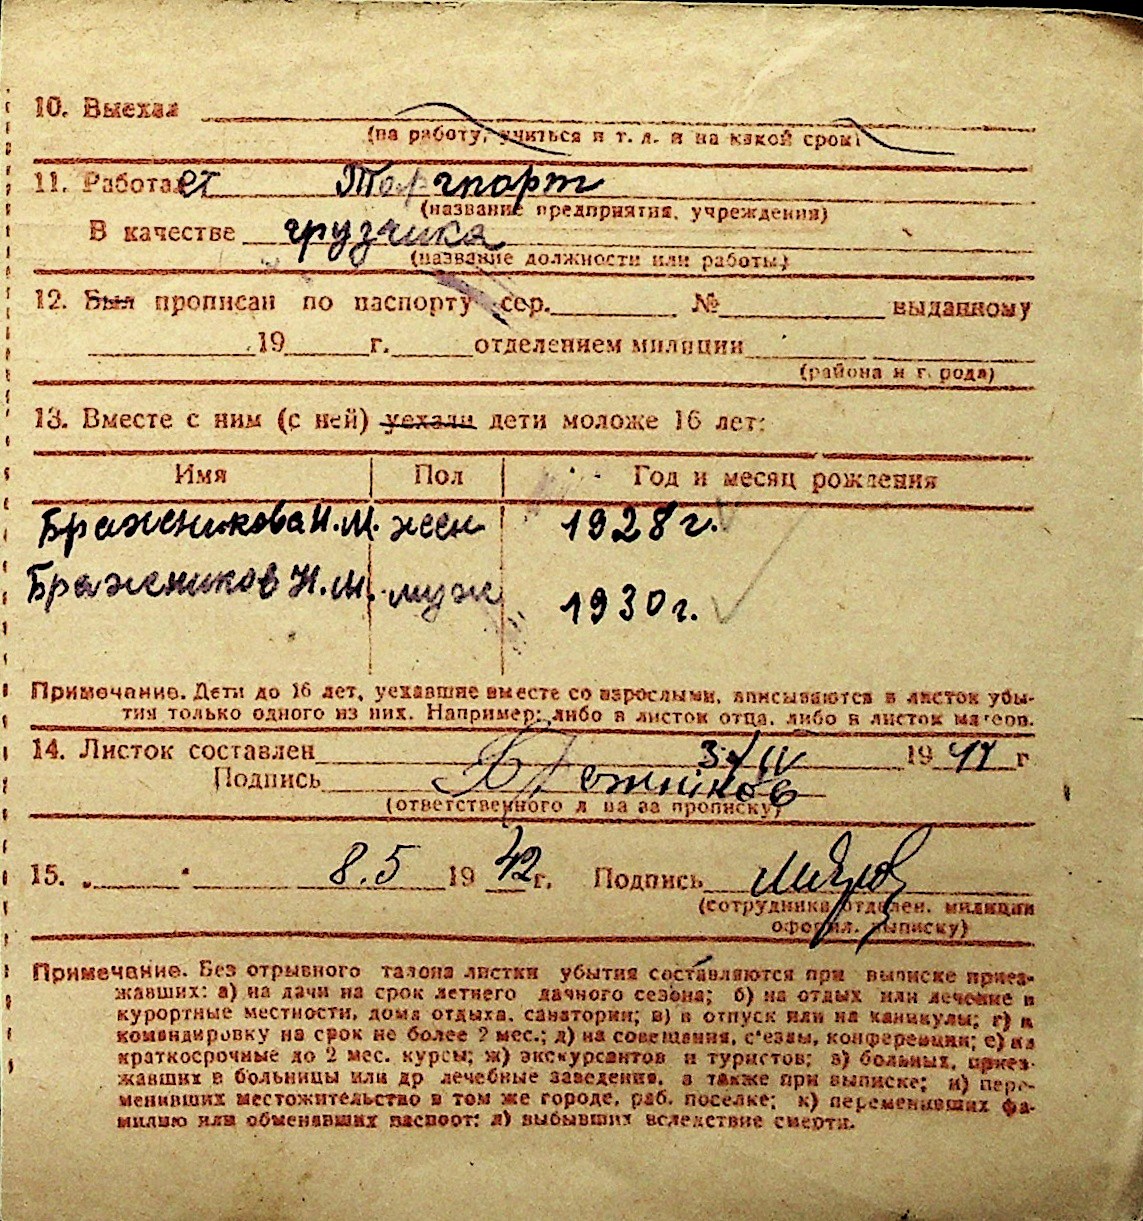 10. Выехал
(на работу, учиться и т. д. и на какой срок)
11. Работает Торгпорт
(название предприятия, учреждения)
В качестве грузчика
(название должности или работы)
12. Был прописан по паспорту сер. № выданному
19 г. отделением милиции
(района и города)
13. Вместе с ним (с ней) уехали дети моложе 16 лет:
Имя Пол Год и месяц рождения
Бражникова Н.М. жен 1928 г.
Бражников Н.М. муж 1930 г.
Примечание. Дети до 16 лет, уехавшие вместе со взрослыми, вписываются в листок убы-
тия только одного из них. Например: либо в листок отца, либо в листок матери.
14. Листок составлен 3/IV 19 41 г
Подпись
(ответственного л ца за прописку)
15. „ " 8.5 19 42 г. Подпись
(сотрудника отделен. милиции
оформл. выписку)
Примечание. Без отрывного талона листки убытия составляются при выписке приез-
жавших: а) на дачи на срок летнего дачного сезона; б) на отдых или лечение в
курортные местности, дома отдыха, санатории; в) в отпуск или на каникулы; г) в
командировку на срок не более 2 мес.; д) на совещания, с'езды, конференции; е) на
краткосрочные до 2 мес. курсы; ж) экскурсантов и туристов; з) больных, приез-
жавших в больницы или др лечебные заведения, а также при выписке; и) пере-
менивших местожительство в том же городе, раб. поселке; к) переменивших фа-
милию или обменявших паспорт; л) выбывших вследствие смерти.